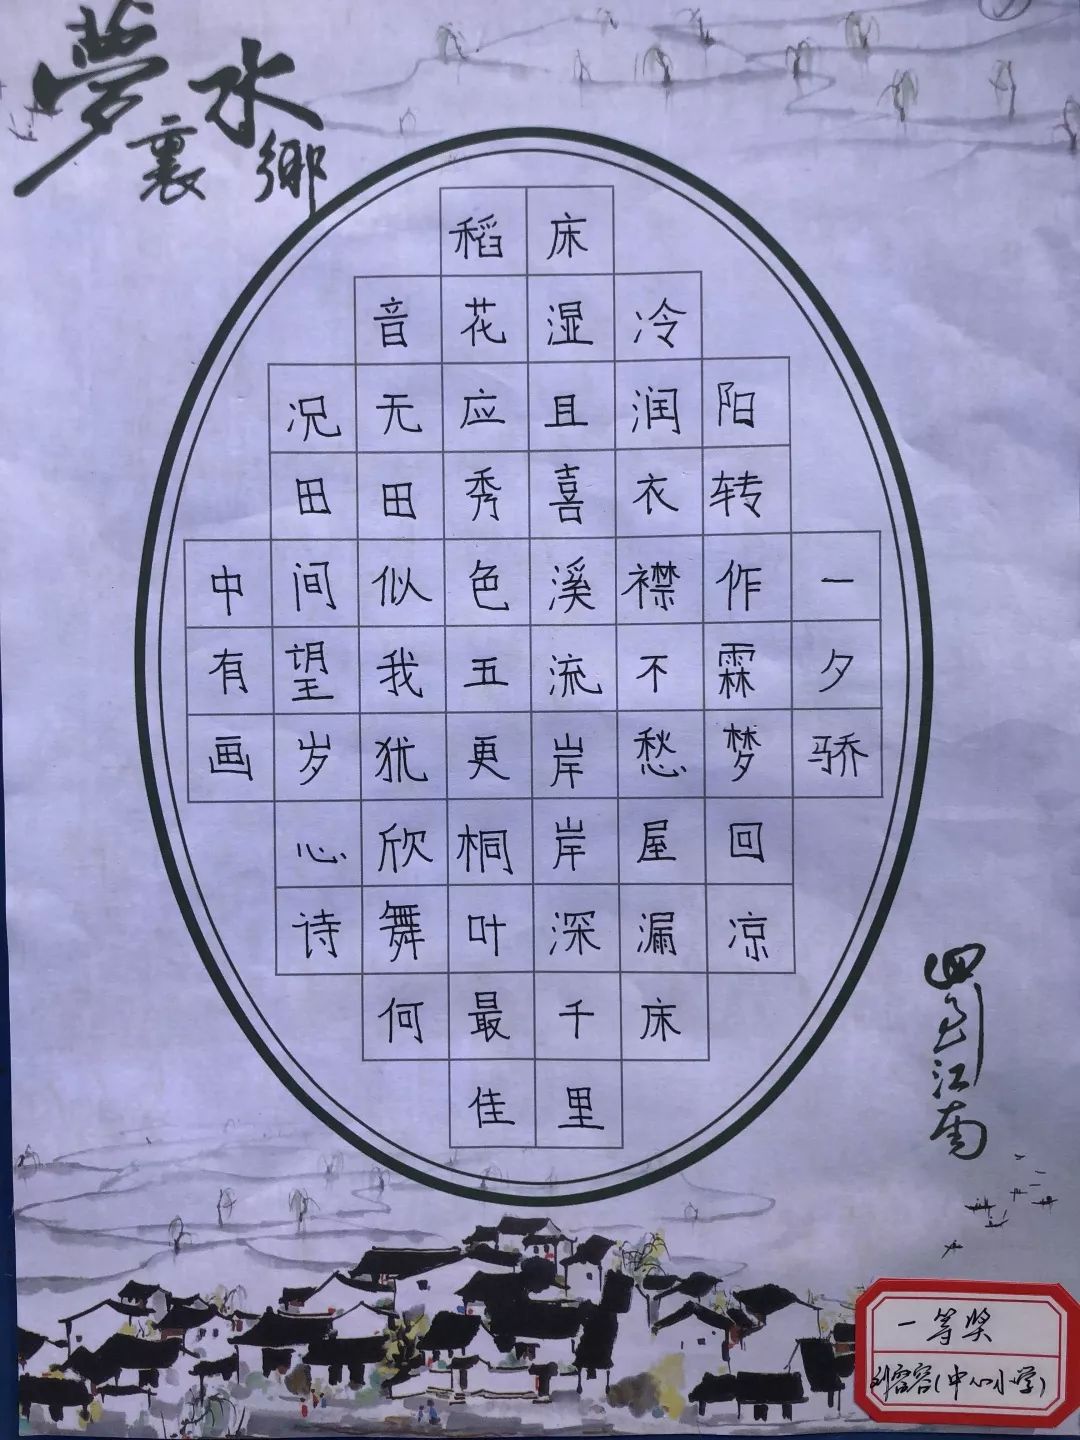 夢裏水鄉
一夕骄
阳转作霖梦回凉
冷润衣襟不愁屋漏床
床湿且喜溪流岸岸深千里
稻花应秀色五更桐叶最佳
音无田似我犹欣舞何
况田间望岁心诗
中有画
江南
一等奖
(中心小学)